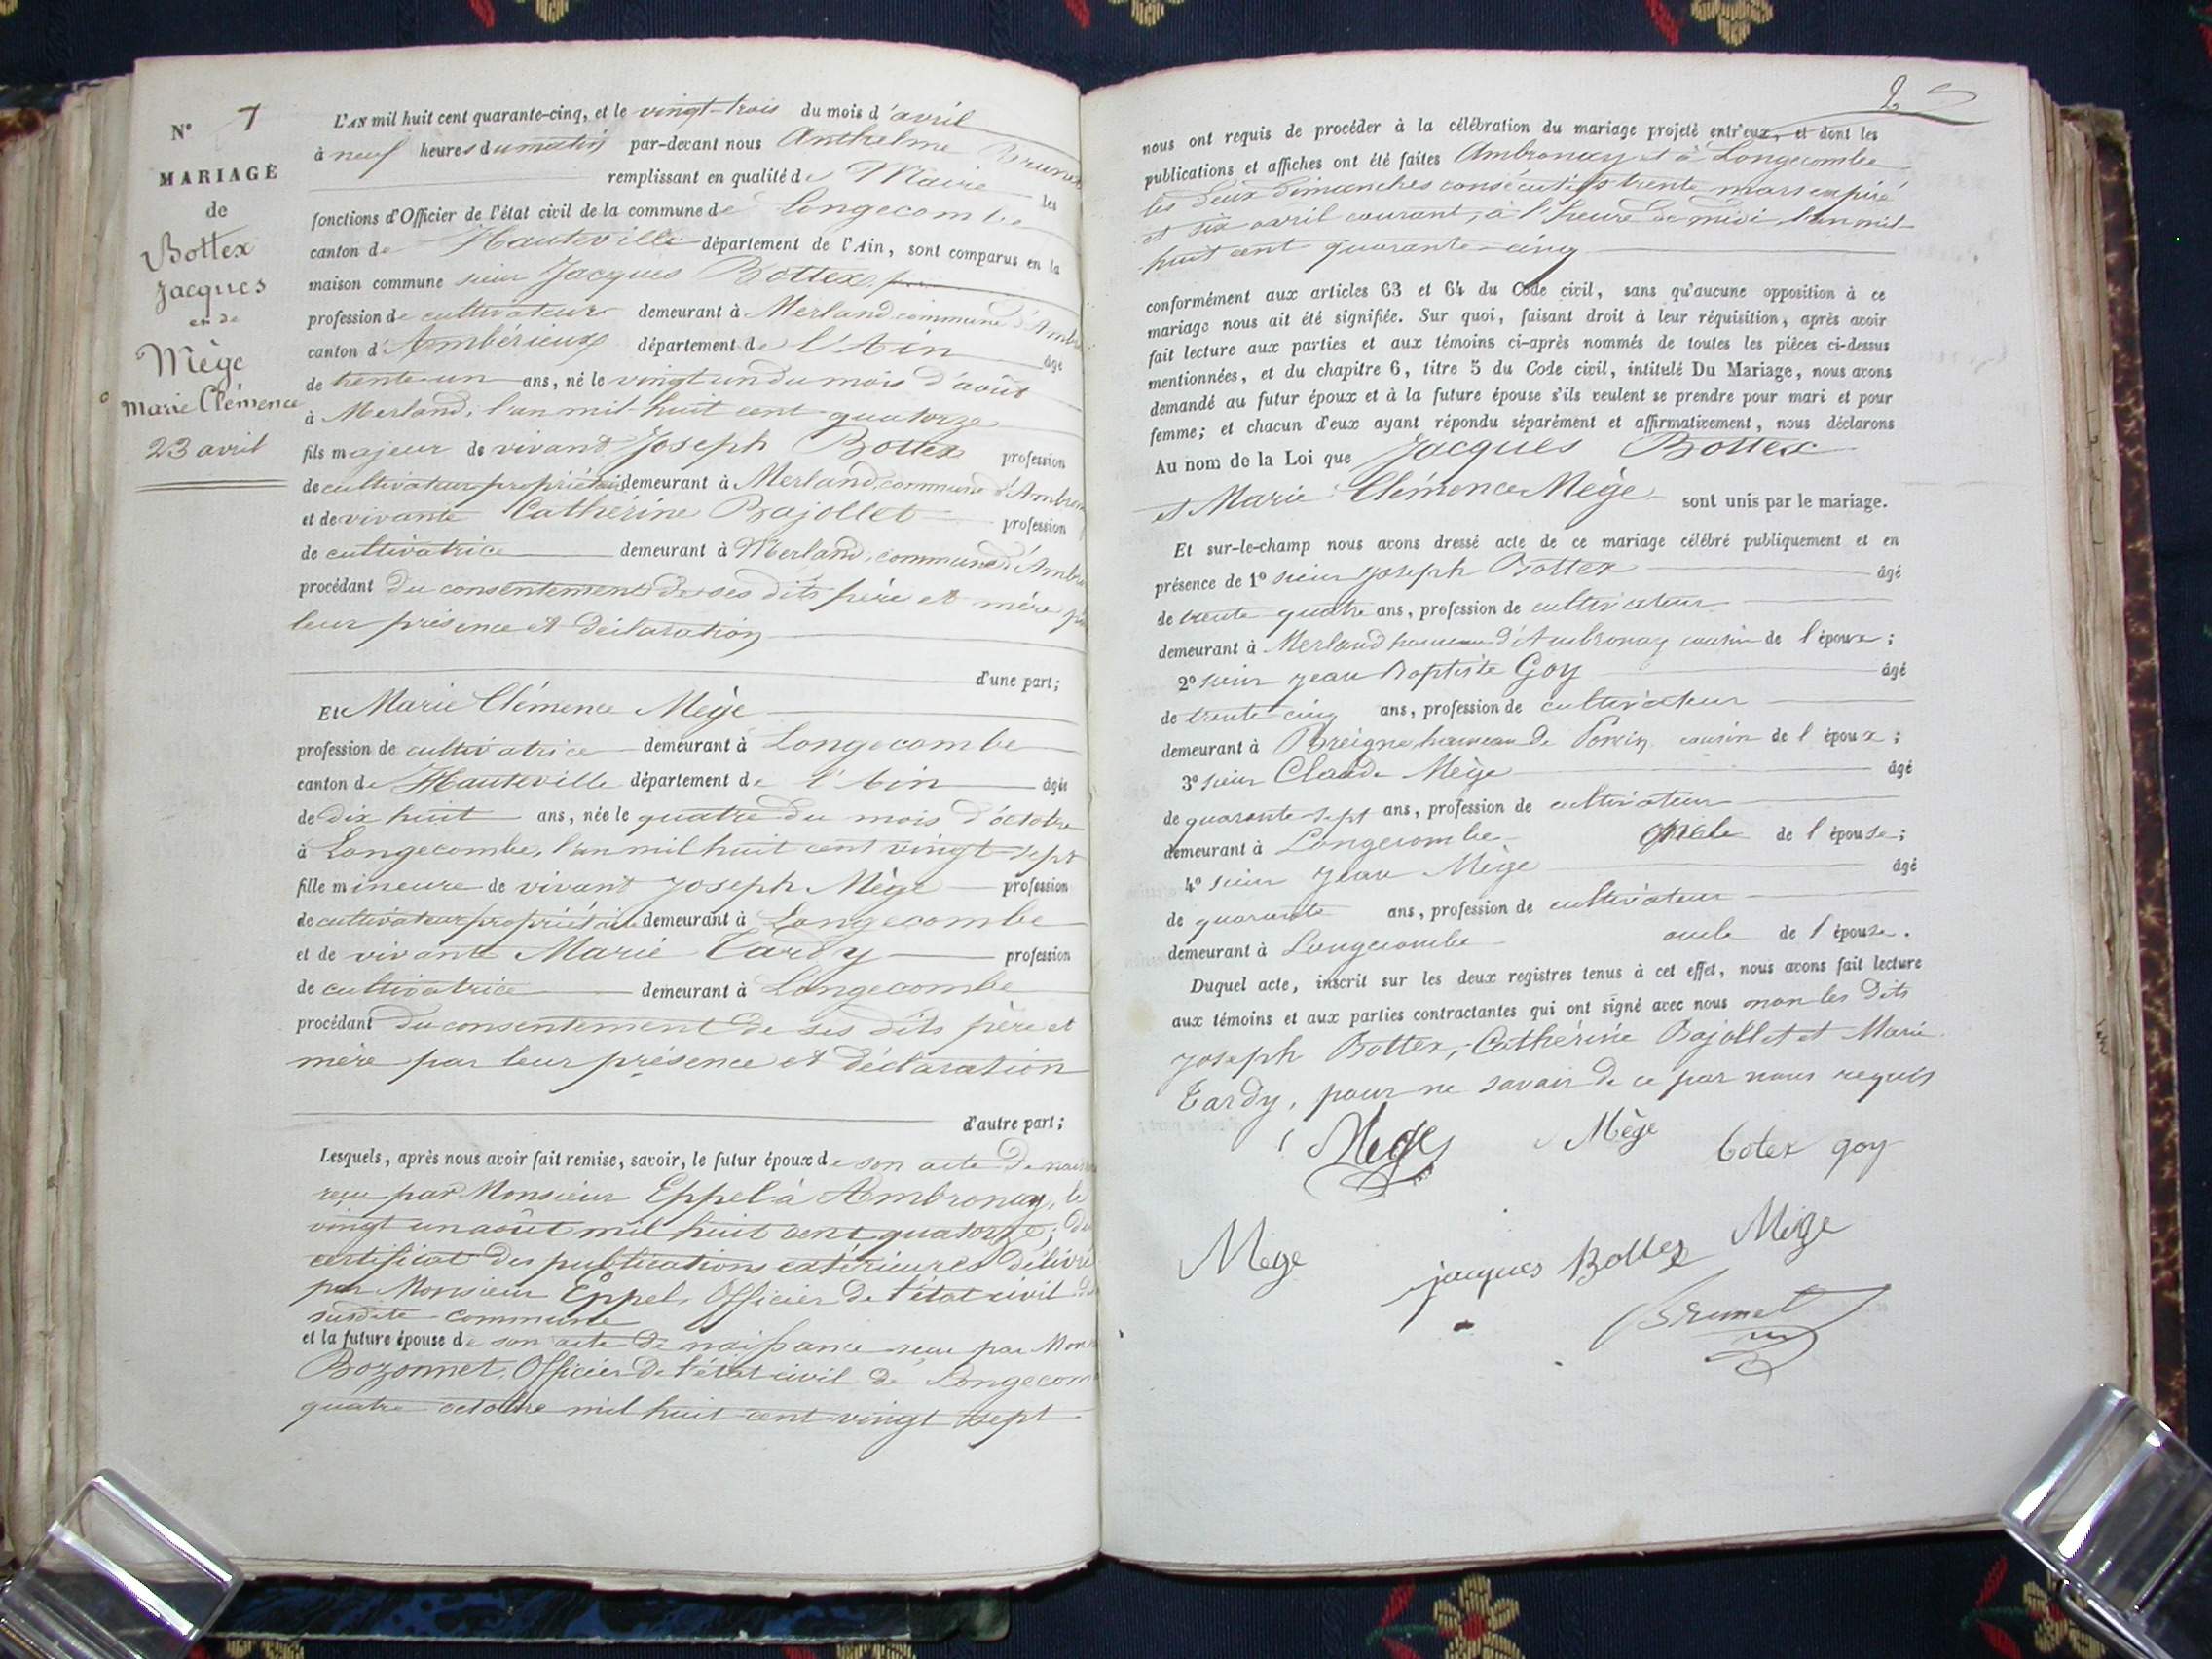 N° 7
MARIAGE
de
Bottex
Jacques
et de
Mège
Marie Clémence
23 avril
L'AN mil huit cent quarante-cinq, et le vingt-trois du mois d'avril
à neuf heures du matin par-devant nous Anthelme Brunet
remplissant en qualité de Maire les
fonctions d'Officier de l'état civil de la commune de Longecombe
canton de Hauteville département de l'Ain, sont comparus en la
maison commune sieur Jacques Bottex
profession de cultivateur demeurant à Merland, commune d'Ambr
canton d'Ambérieux département de l'Ain âgé
de trente-un ans, né le vingt un du mois d'août
à Merland, l'an mil huit cent quatorze
fils majeur de vivant Joseph Bottex profession
de cultivateur propriétaire demeurant à Merland, commune d'Ambron
et de vivante Cathérine Bajollet profession
de cultivatrice demeurant à Merland, commune d'Ambr
procédant du consentement de ses dits père et mère p
leur présence et déclaration
d'une part;
Et Marie Clémence Mège
profession de cultivatrice demeurant à Longecombe
canton de Hauteville département de l'Ain âgée
de dix huit ans, née le quatre du mois d'octobre
à Longecombe, l'an mil huit cent vingt-sept
fille mineure de vivant Joseph Mège profession
de cultivateur propriétaire demeurant à Longecombe
et de vivante Marie Tardy profession
de cultivatrice demeurant à Longecombe
procédant du consentement de ses dits père et
mère par leur présence et déclaration
d'autre part;
Lesquels, après nous avoir fait remise, savoir, le futur époux de son acte de nais
reçu par Monsieur Eppel à Ambronay, le
vingt un août mil huit cent quatorze; du
certificat des publications extérieures délivré
par Monsieur Eppel, Officier de l'état civil de
susdite commune
et la future épouse de son acte de naissance reçu par Mons
Bozonnet, Officier de l'état civil de Longecom
quatre octobre mil huit cent vingt sept
nous ont requis de procéder à la célébration du mariage projeté entr'eux, et dont les
publications et affiches ont été faites Ambronay et à Longecombe
les deux dimanches consécutifs trente mars expiré
et six avril courant, à l'heure de midi l'an mil
huit cent quarante-cinq
conformément aux articles 63 et 64 du Code civil, sans qu'aucune opposition à ce
mariage nous ait été signifiée. Sur quoi, faisant droit à leur réquisition, après avoir
fait lecture aux parties et aux témoins ci-après nommés de toutes les pièces ci-dessus
mentionnées, et du chapitre 6, titre 5 du Code civil, intitulé Du Mariage, nous avons
demandé au futur époux et à la future épouse s'ils veulent se prendre pour mari et pour
femme; et chacun d'eux ayant répondu séparément et affirmativement, nous déclarons
Au nom de la Loi que Jacques Bottex
et Marie Clémence Mège sont unis par le mariage.
Et sur-le-champ nous avons dressé acte de ce mariage célébré publiquement et en
présence de 1° sieur Joseph Bottex âgé
de trente quatre ans, profession de cultivateur
demeurant à Merland hameau d'Ambronay cousin de l'époux;
2° sieur Jean Baptiste Goy âgé
de trente cinq ans, profession de cultivateur
demeurant à Breigne, hameau de Poncin cousin de l'époux;
3° sieur Claude Mège âgé
de quarante-sept ans, profession de cultivateur
demeurant à Longecombe oncle de l'épouse;
4° sieur Jean Mège âgé
de quarante ans, profession de cultivateur
demeurant à Longecombe oncle de l'épouse.
Duquel acte, inscrit sur les deux registres tenus à cet effet, nous avons fait lecture
aux témoins et aux parties contractantes qui ont signé avec nous non les dits
Joseph Bottex, Cathérine Bajollet et Marie
Tardy, pour ne savoir de ce par nous requis
Mege Mège botex goy
Mege jacques Bottex Mège
Brunet